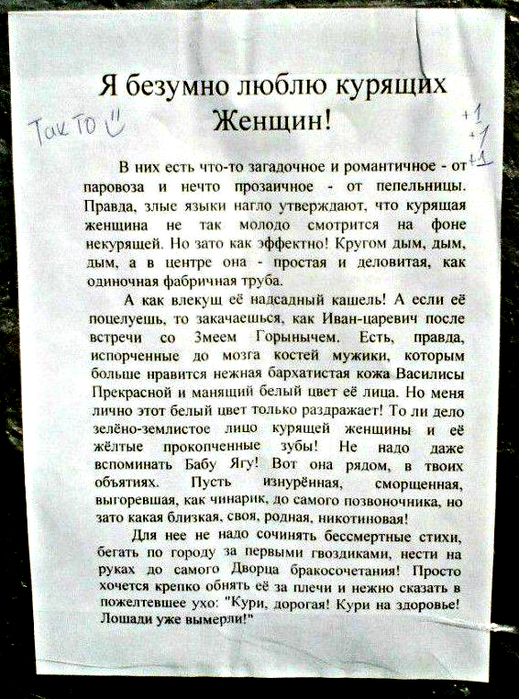 Я безумно люблю курящих
Женщин!
Так то
+1
+1
+1
В них есть что-то загадочное и романтичное - от
паровоза и нечто прозаичное - от пепельницы.
Правда, злые языки нагло утверждают, что курящая
женщина не так молодо смотрится на фоне
некурящей. Но зато как эффектно! Кругом дым, дым,
дым, а в центре она - простая и деловитая, как
одиночная фабричная труба.
А как влекущ её надсадный кашель! А если её
поцелуешь, то закачаешься, как Иван-царевич после
встречи со Змеем Горынычем. Есть, правда,
испорченные до мозга костей мужики, которым
больше нравится нежная бархатистая кожа Василисы
Прекрасной и манящий белый цвет её лица. Но меня
лично этот белый цвет только раздражает! То ли дело
зелёно-землистое лицо курящей женщины и её
жёлтые прокопченные зубы! Не надо даже
вспоминать Бабу Ягу! Вот она рядом, в твоих
объятиях. Пусть изнурённая, сморщенная,
выгоревшая, как чинарик, до самого позвоночника, но
зато какая близкая, своя, родная, никотиновая!
Для нее не надо сочинять бессмертные стихи,
бегать по городу за первыми гвоздиками, нести на
руках до самого Дворца бракосочетания! Просто
хочется крепко обнять её за плечи и нежно сказать в
пожелтевшее ухо: "Кури, дорогая! Кури на здоровье!
Лошади уже вымерли!"